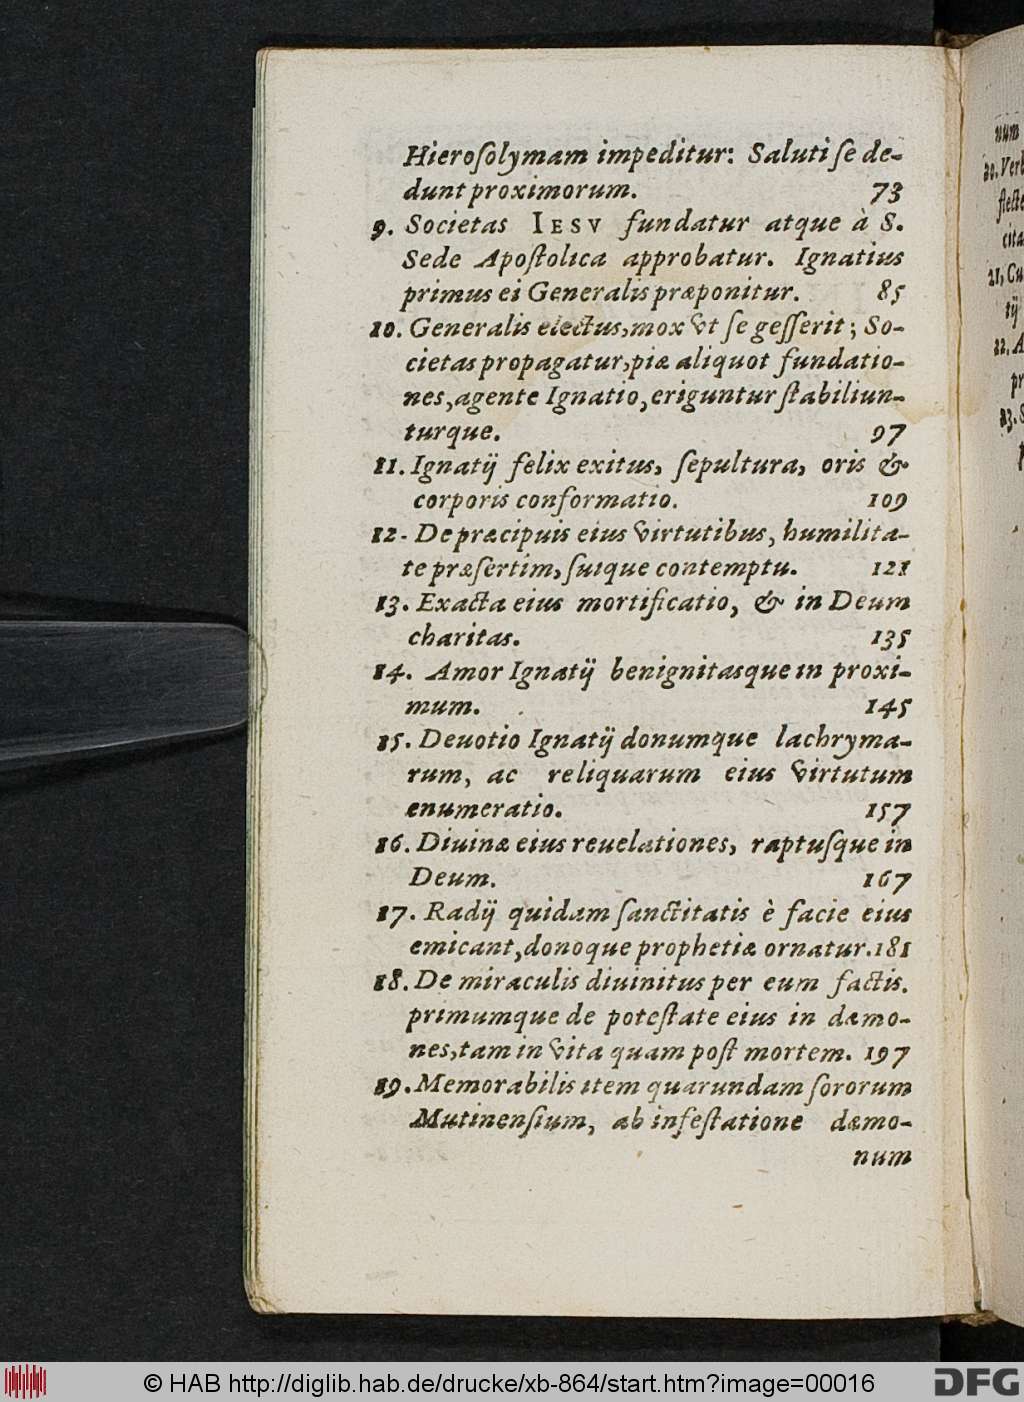 Hieroſolymam impeditur: Saluti ſe de-
dunt proximorum. 73
9. Societas IESV fundatur atque à S.
Sede Apoſtolica approbatur. Ignatius
primus ei Generalis præponitur. 85
10. Generalis electus, mox vt ſe geſſerit; So-
cietas propagatur, piæ aliquot fundatio-
nes, agente Ignatio, eriguntur ſtabiliun-
turque. 97
11. Ignatij felix exitus, ſepultura, oris &
corporis conformatio. 109
12. De præcipuis eius virtutibus, humilita-
te præſertim, ſuique contemptu. 121
13. Exacta eius mortificatio, & in Deum
charitas. 135
14. Amor Ignatij benignitasque in proxi-
mum. 145
15. Deuotio Ignatij donumque lachryma-
rum, ac reliquarum eius virtutum
enumeratio. 157
16. Diuinæ eius reuelationes, raptuſque in
Deum. 167
17. Radij quidam ſanctitatis è facie eius
emicant, donoque prophetiæ ornatur. 181
18. De miraculis diuinitus per eum factis.
primumque de poteſtate eius in dæmo-
nes, tam in vita quam poſt mortem. 197
19. Memorabilis item quarundam ſororum
Mutinenſium, ab infeſtatione dæmo-
num
num
20. Verb
flecte
cita
21. Cu
tij
22. A
pr
23. S
© HAB http://diglib.hab.de/drucke/xb-864/start.htm?image=00016
DFG